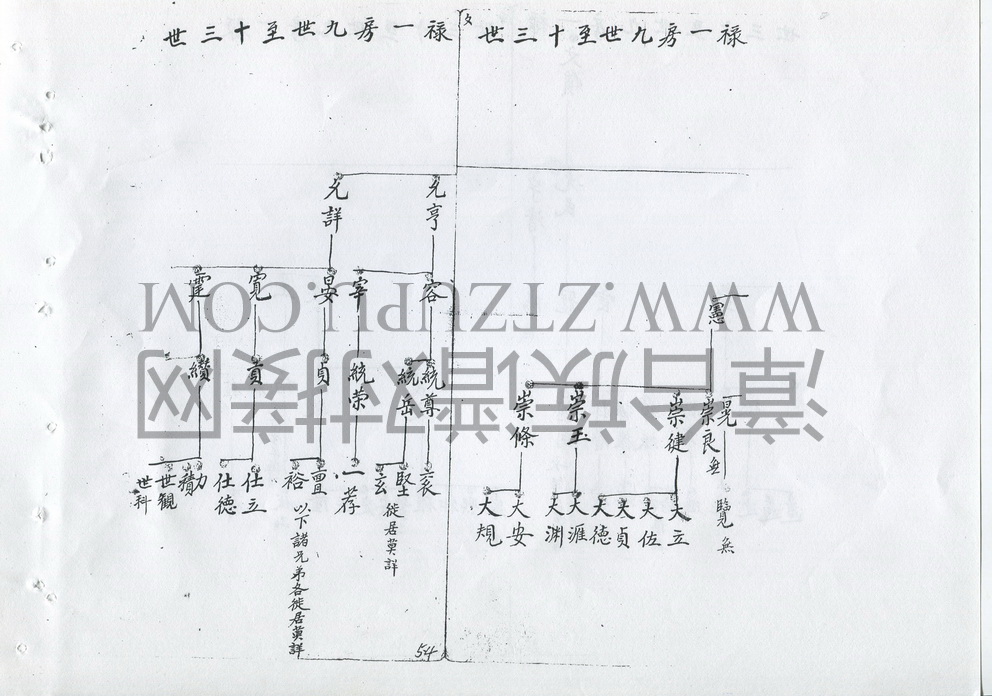 禄一房九世至十三世
憲
晃
崇良無
崇健
崇玉
崇條
覽無
大立
大佐
大貞
大德
大涯
大渊
大安
大規
禄一房九世至十三世
元亨
元詳
容
宰
晏
寬
霆
統尊
統岳
統荣
貞
貴
纘
衮
堅
玄
徙居莫詳
一荐
亶
裕
以下諸兄弟各徙居莫詳
仕立
仕德
勣
世觀
世科
54
WWW.ZTZUPU.COM
漳台族谱对接网